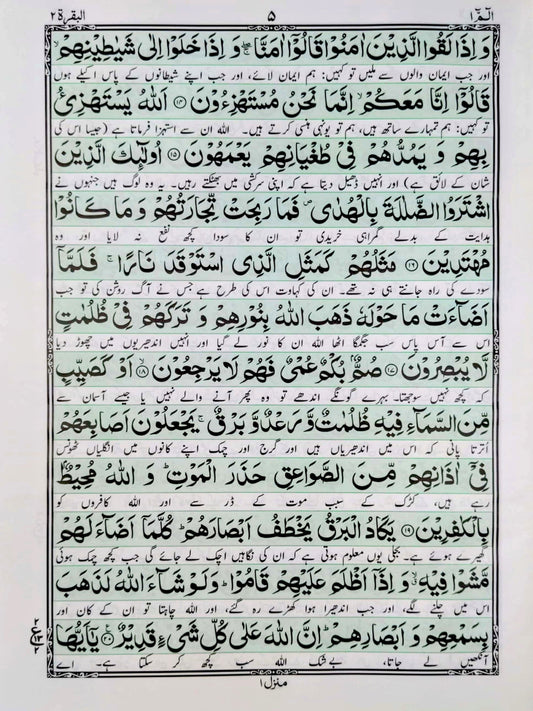 الٓمّٓ ١ ۵ البقرة ٢
وَ اِذَا لَقُوا الَّذِیْنَ اٰمَنُوْا قَالُوْۤا اٰمَنَّا ۖۚ وَ اِذَا خَلَوْا اِلٰی شَیٰطِیْنِهِمْ ۙ
اور جب ایمان والوں سے ملیں تو کہیں: ہم ایمان لائے، اور جب اپنے شیطانوں کے پاس اکیلے ہوں
قَالُوْۤا اِنَّا مَعَكُمْ ۙ اِنَّمَا نَحْنُ مُسْتَهْزِءُوْنَ ﴿۱۴﴾ اَللّٰهُ یَسْتَهْزِئُ
تو کہیں: ہم تمہارے ساتھ ہیں، ہم تو یونہی ہنسی کرتے ہیں۔ اللہ ان سے استہزا فرماتا ہے (جیسا اس کی
بِهِمْ وَ یَمُدُّهُمْ فِیْ طُغْیَانِهِمْ یَعْمَهُوْنَ ﴿۱۵﴾ اُولٰٓىِٕكَ الَّذِیْنَ
شان کے لائق ہے) اور انہیں ڈھیل دیتا ہے کہ اپنی سرکشی میں بھٹکتے رہیں۔ یہ وہ لوگ ہیں جنہوں نے
اشْتَرَوُا الضَّلٰلَةَ بِالْهُدٰی ۪ فَمَا رَبِحَتْ تِّجَارَتُهُمْ وَ مَا كَانُوْا
ہدایت کے بدلے گمراہی خریدی تو ان کا سودا کچھ نفع نہ لایا اور وہ
مُهْتَدِیْنَ ﴿۱۶﴾ مَثَلُهُمْ كَمَثَلِ الَّذِی اسْتَوْقَدَ نَارًا ۚ فَلَمَّاۤ
سودے کی راہ جانتے ہی نہ تھے۔ ان کی کہاوت اس کی طرح ہے جس نے آگ روشن کی تو جب
اَضَآءَتْ مَا حَوْلَهٗ ذَهَبَ اللّٰهُ بِنُوْرِهِمْ وَ تَرَكَهُمْ فِیْ ظُلُمٰتٍ
اس سے آس پاس سب جگمگا اٹھا اللہ ان کا نور لے گیا اور انہیں اندھیریوں میں چھوڑ دیا
لَّا یُبْصِرُوْنَ ﴿۱۷﴾ صُمٌّۢ بُكْمٌ عُمْیٌ فَهُمْ لَا یَرْجِعُوْنَ ﴿۱۸﴾ اَوْ كَصَیِّبٍ
کہ کچھ نہیں سوجھتا۔ بہرے گونگے اندھے تو وہ پھر آنے والے نہیں یا جیسے آسمان سے
مِّنَ السَّمَآءِ فِیْهِ ظُلُمٰتٌ وَّ رَعْدٌ وَّ بَرْقٌ ۚ یَجْعَلُوْنَ اَصَابِعَهُمْ
اُترتا پانی کہ اس میں اندھیریاں ہیں اور گرج اور چمک اپنے کانوں میں انگلیاں ٹھونس
فِیْۤ اٰذَانِهِمْ مِّنَ الصَّوَاعِقِ حَذَرَ الْمَوْتِ ؕ وَ اللّٰهُ مُحِیْطٌۢ
رہے ہیں، کڑک کے سبب موت کے ڈر سے اور اللہ کافروں کو
بِالْكٰفِرِیْنَ ﴿۱۹﴾ یَكَادُ الْبَرْقُ یَخْطَفُ اَبْصَارَهُمْ ؕ كُلَّمَاۤ اَضَآءَ لَهُمْ
گھیرے ہوئے ہے۔ بجلی یوں معلوم ہوتی ہے کہ ان کی نگاہیں اچک لے جائے گی جب کچھ چمک ہوئی
مَّشَوْا فِیْهِ ۙ وَ اِذَاۤ اَظْلَمَ عَلَیْهِمْ قَامُوْا ؕ وَ لَوْ شَآءَ اللّٰهُ لَذَهَبَ
اس میں چلنے لگے، اور جب اندھیرا ہوا کھڑے رہ گئے، اور اللہ چاہتا تو ان کے کان اور
بِسَمْعِهِمْ وَ اَبْصَارِهِمْ ؕ اِنَّ اللّٰهَ عَلٰی كُلِّ شَیْءٍ قَدِیْرٌ ﴿۲۰﴾ یٰۤاَیُّهَا
آنکھیں لے جاتا، بے شک اللہ سب کچھ کر سکتا ہے۔ اے
٢
ع
١٣
٢
منزل ١